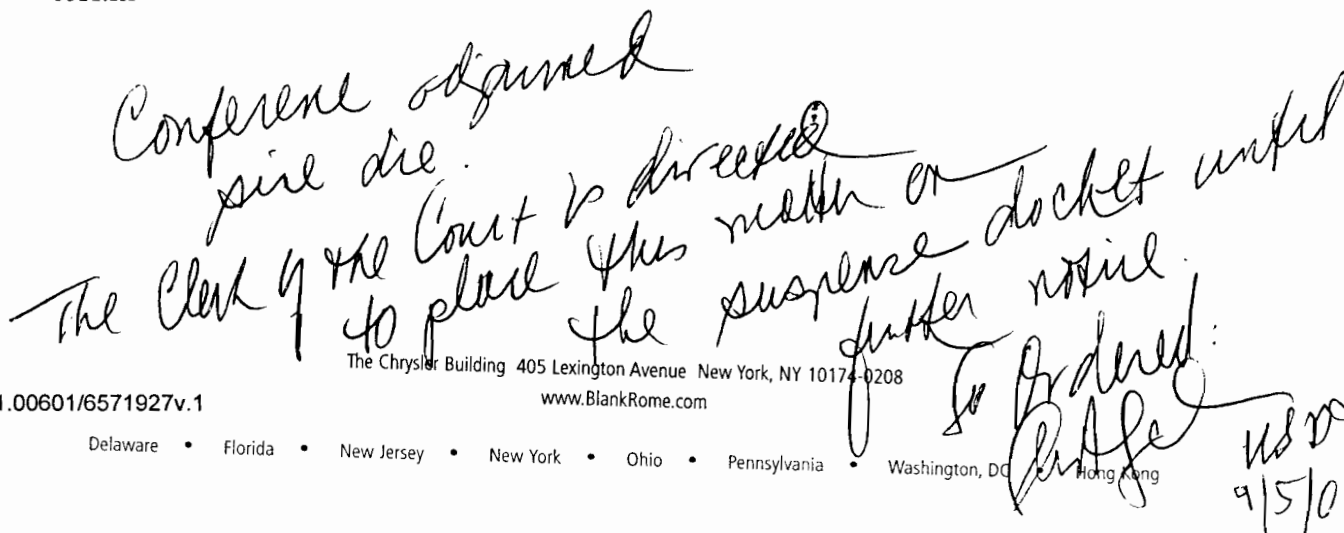 Conference adjourned
sine die.
The Clerk of the Court is directed
to place this matter on
the suspense docket until
further notice.
So Ordered:
The Chrysler Building 405 Lexington Avenue New York, NY 10174-0208
www.BlankRome.com
.00601/6571927v.1
Delaware • Florida • New Jersey • New York • Ohio • Pennsylvania • Washington, DC • Hong Kong
9/5/0